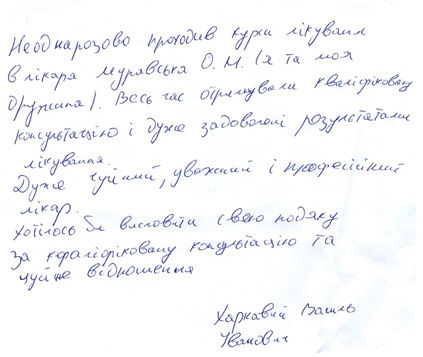 Неоднарозово проходив курси лікування
в лікаря Муравська О. М. (я та моя
дружина). Весь час отримували кваліфіковану
консультацію і дуже задоволені результатами
лікування.
Дуже чуйний, уважний і професійний
лікар.
Хотілось би висловити свою подяку
за кваліфіковану консультацію та
чуйне відношення
Харкавий Василь
Іванович